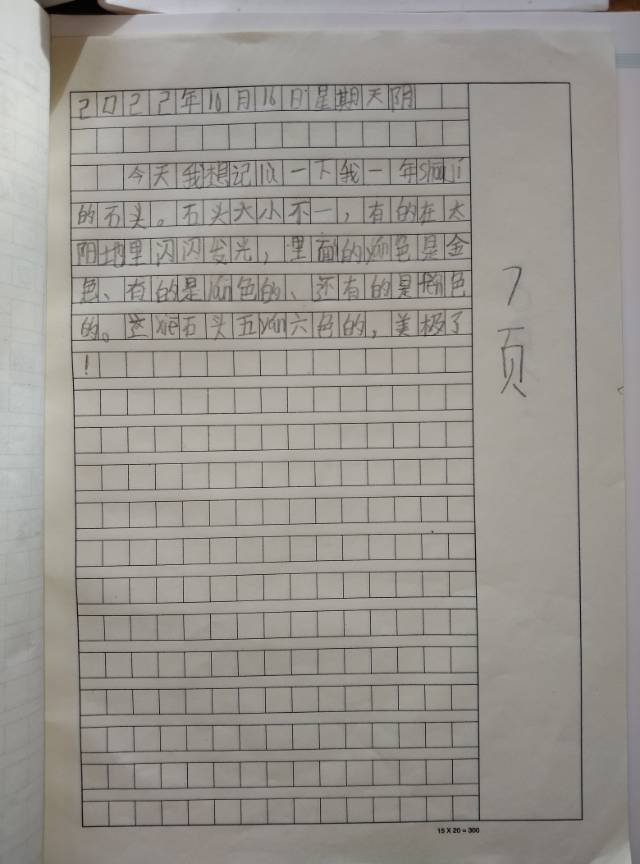 2022年10月16日星期天阴
今天我想记 一下我一年
的石头。石头大小不一，有的在太
阳地里闪闪发光，里面的yan色是金
色、有的是yan色的、还有的是 色
的。这xie石头五yan六色的，美极了
！
7
页
15 X 20 = 300